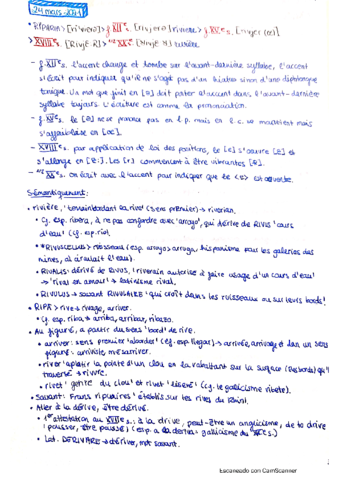 24 mars 2021
*RIPARIA > [ri'vεra] > f.XIIe s.
> XVIIIe s.
- f. XIIe s. l'accent change et tombe sur l'avant-dernière syllabe, l'accent
s'écrit pour indiquer qu'il ne s'agit pas d'un hiatus sinon d'une diphtongue
tonique. Un mot que finit en [ə] doit porter l'accent dans l'avant-dernière
syllabe toujours. L'écriture est comme la prononciation.
- f. XVe s. le [ə] ne se prononce pas en l.p. mais en l.c. se maintient mais
s'affaiblise en [œ].
- XVIIIe s. par application de loi des positions, le [e] s'ouvre [ε] et
s'allonge en [ε:]. Les [r] commencent à être vibrantes [R].
- XXe s. On écrit avec l'accent pour indiquer que le <è> est ouverte.
Sémantiquement:
• rivière, 'terrain bordant la rive' (sens premier) → riverian.
• Cf. esp. rivera, à ne pas confondre avec 'arroyo', qui dérive de RIVUS 'cours
d'eau' (cf. esp. río).
• *RIVUSCELLUS > ruisseau (esp. arroyo > arruga, hispanisme pour les galeries des
mines, où circulait l'eau).
• RIVALIS: dérivé de RIVUS, 'riverain autorisé à faire usage d'un cours d'eau'
→ 'rival en amour' → latinisme rival.
• RIVULUS → savant RIVULAIRE 'qui croît dans les ruisseaux ou sur leurs bords'.
• RIPA > rive → rivage, arriver.
• Cf. esp. riba → arriba, arribar, ribazo.
• Au figuré, à partir du sens 'bord' de rive.
• arriver: sens premier 'aborder' (cf. esp. llegar) → arrivée, arrivage et dan un sens
figuré: arriviste, mésarriver.
• river 'aplatir la pointe d'un clou en la rabattant sur la surface (les bords) qu'il
traverse' → rivure.
• rivet 'genre du clou' et rivet 'liseré' (cf. le gallicisme ribete).
• Savant: Francs ripuaires 'établis sur les rives du Rhin'.
• Aller à la dérive, être dérivé.
• 1re attestation au XVIIe s.: à la drive, peut-être un anglicisme, de to drive
'pousser, être poussé' (esp. a la deriva: gallicisme du s.).
• Lat. DERIVARE → dériver, mot savant.
Escaneado con CamScanner